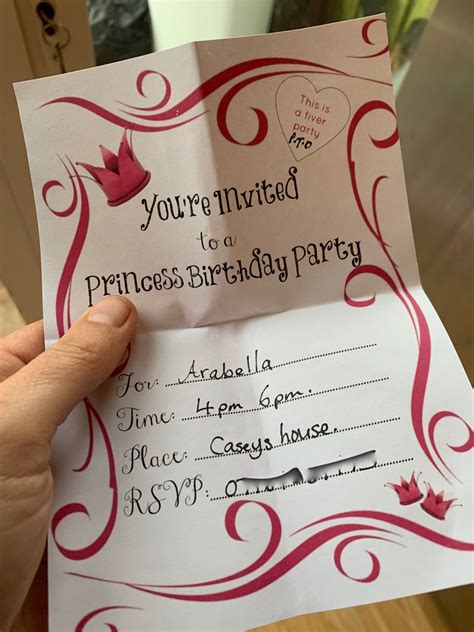 This is
a fiver
party
P.T.O
You're Invited
to a
Princess Birthday Party
For: Arabella
Time: 4pm 6pm.
Place: Caseys house.
RSVP: 0